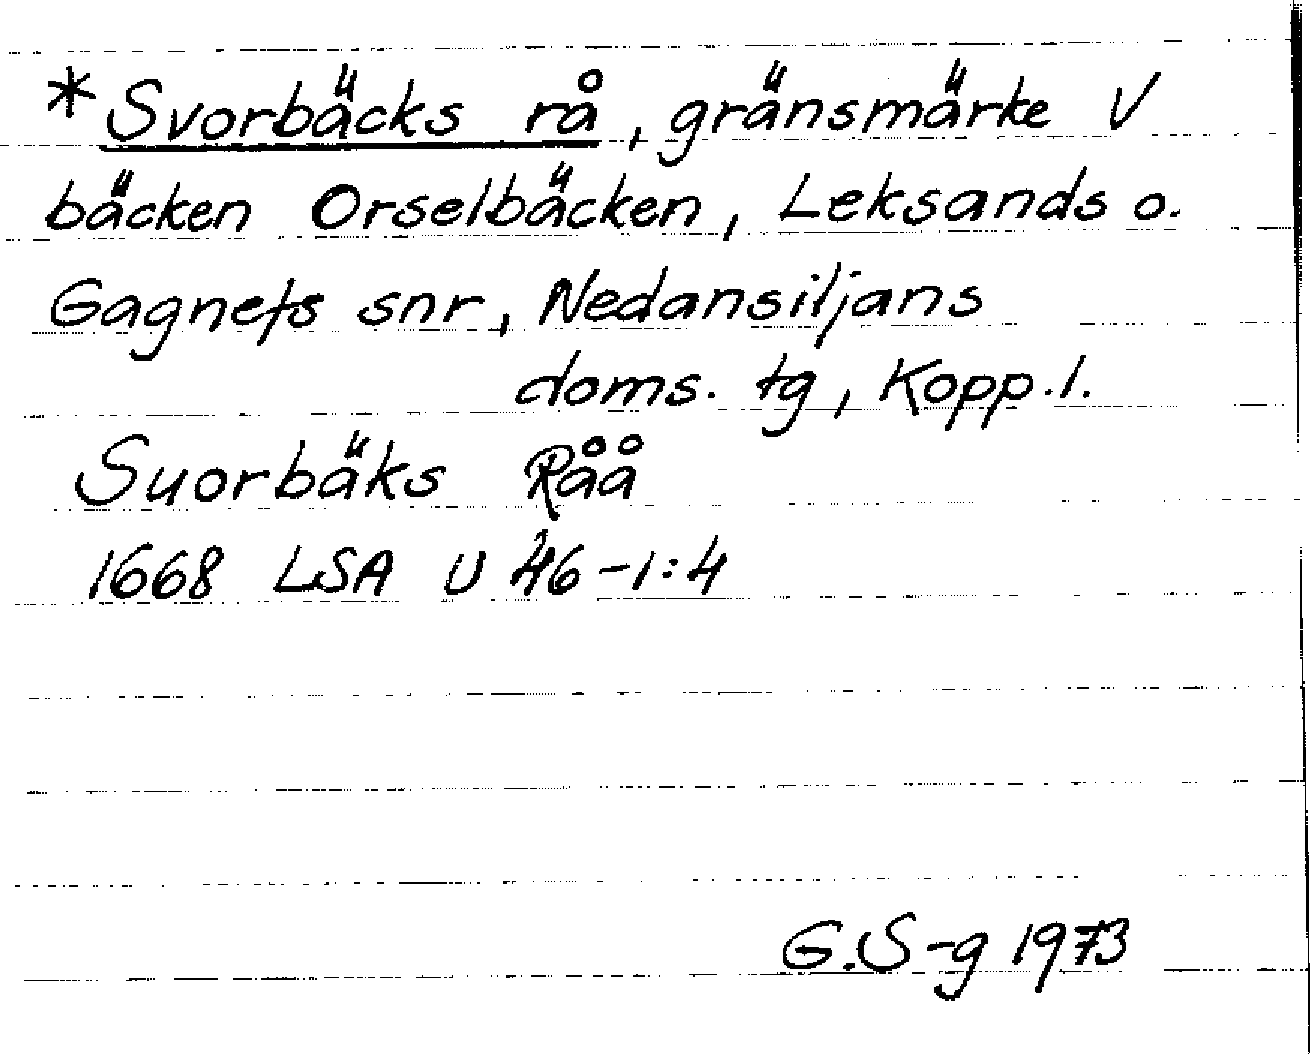 *Svorbäcks rå, gränsmärke V
bäcken Orselbäcken, Leksands o.
Gagnefs snr, Nedansiljans
doms. tg, Kopp.l.
Suorbäks Råå
1668 LSA U 46-1:4
G.S-g 1973